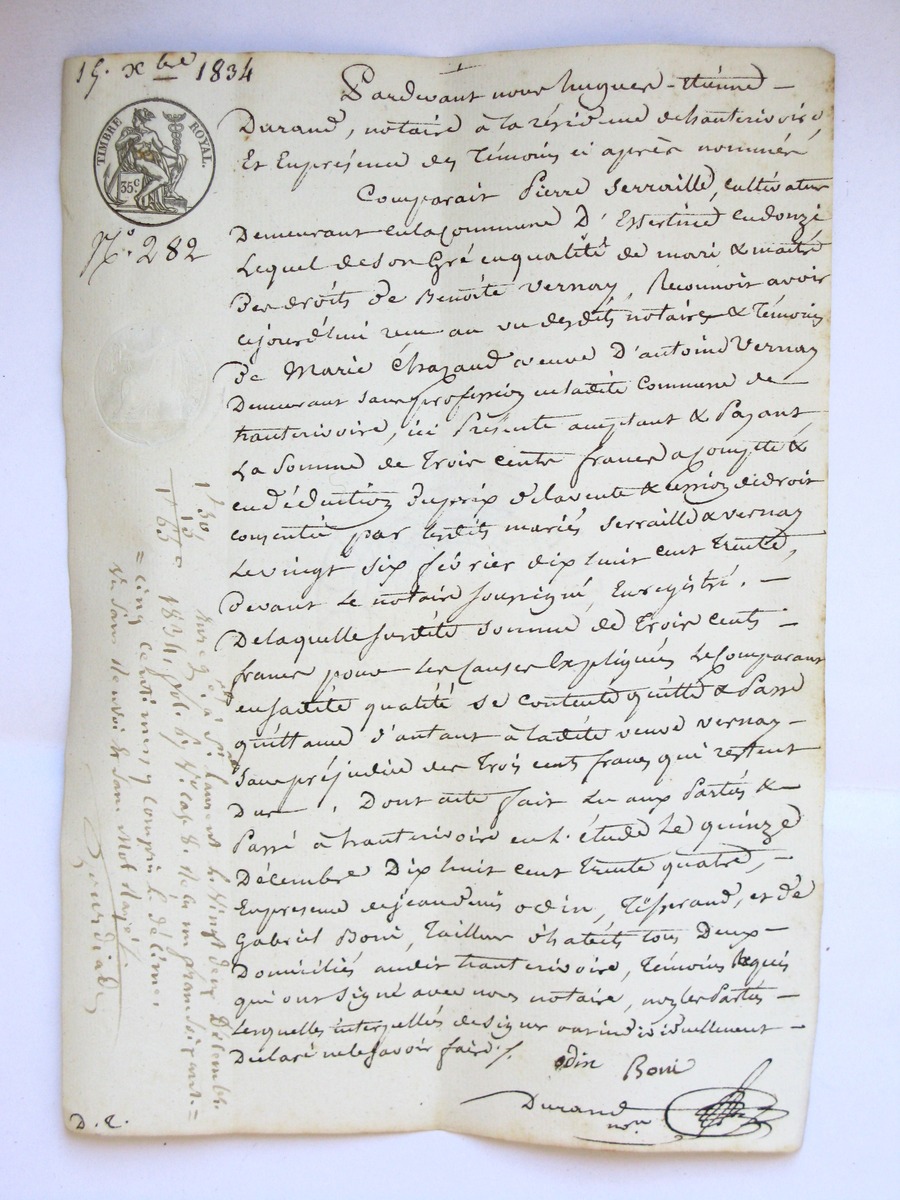 15. xbre 1834
TIMBRE ROYAL.
35c
No. 282
Pardevant nous hugues - étienne -
Durand, notaire à la résidence de hauterivoire
Et En présence des Témoins ci après nommés
Comparait Pierre Serraille, cultivateur
Demeurant en la Commune D'Essertine en donzi
Lequel de son Gré en qualité de mari & maitre
Des droits De Benoite Vernay, Reconnoit avoir
cejourd'hui reçu au vu desdits notaire & Témoins
De Marie Chazaud veuve D'antoine Vernay
Demeurant sans profession en ladite Commune de
hauterivoire, ici Présente acceptant & Payant
La Somme de Trois cents francs a compte &
en déduction du prix de la vente & cession de droit
consentie par lesdits mariés Serraille & Vernay
Le vingt six février dix huit cent trente,
Devant Le notaire soussigné, Enregistré. -
De laquelle susdite somme de Trois cents -
francs pour les causes Expliquées Le Comparant
en sadite qualité se contente quitte & Passe
quittance d'autant à ladite veuve Vernay -
Sans préjudice des Trois cents francs qui restent
Dus. Dont acte fait Lu aux Parties &
Passé à hauterivoire en l'étude Le quinze
Décembre Dix huit cent trente quatre, -
En présence de jean denis odin, Tisserand, et de
Gabriel Boni, Tailleur d'habits tous Deux -
Domiciliés audit hauterivoire, Témoins Requis
qui ont signé avec nous notaire, non les Parties -
Lesquelles interpellées de signer ont individuellement -
Déclaré ne le savoir faire /.
odin Boni
Durand
nore
1f 30
15
1f 65
Enregé à St Laurent le vingt deux Décembre
1834. fol. 67 Vo. Case 8. Reçu un franc cinquante
= cinq centimes y compris le décime
D. E.